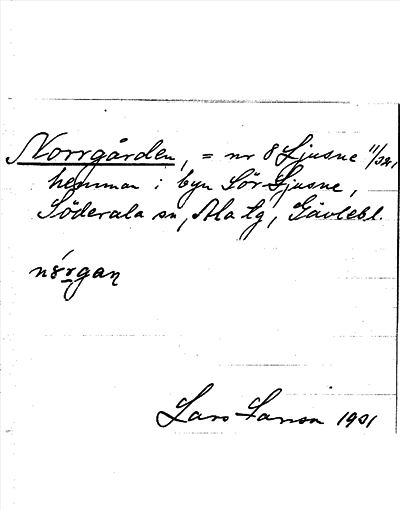 Norrgården, = nr 8 Ljusne
hemman i byn Sör Ljusne,
Söderala sn, Ala tg, Gävlebl.
Lars Larson 1901